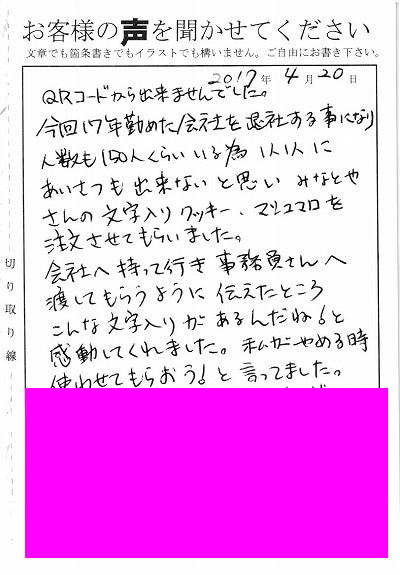 お客様の声を聞かせてください
文章でも箇条書きでもイラストでも構いません。ご自由にお書き下さい。
2017年 4月 20日
QRコードから出来ませんでした。
今回17年勤めた会社を退社する事になり
人数も150人くらいいる為 1人1人に
あいさつも出来ないと思い みなとや
さんの文字入りクッキー、マシュマロを
注文させてもらいました。
会社へ持って行き 事務員さんへ
渡してもらうように 伝えたところ
こんな文字入りがあるんだね!と
感動してくれました。私がやめる時
使わせてもらおう!と言ってました。
切り取り線